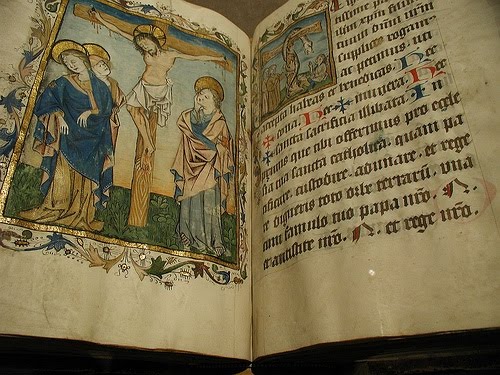 supplices rogam
ac petimus. uti
accepta habeas et benedicas. Hec
dona. Hec munera. Hec
sancta sacrificia illibata. In
primis que tibi offerimus pro eccle
sia tua sancta catholica. quam pa
cificare. custodire. adunare. et rege
re digneris toto orbe terrarū. vna
cum famulo tuo papa nr̄o. N.
et antistite nr̄o. N. et rege nr̄o.